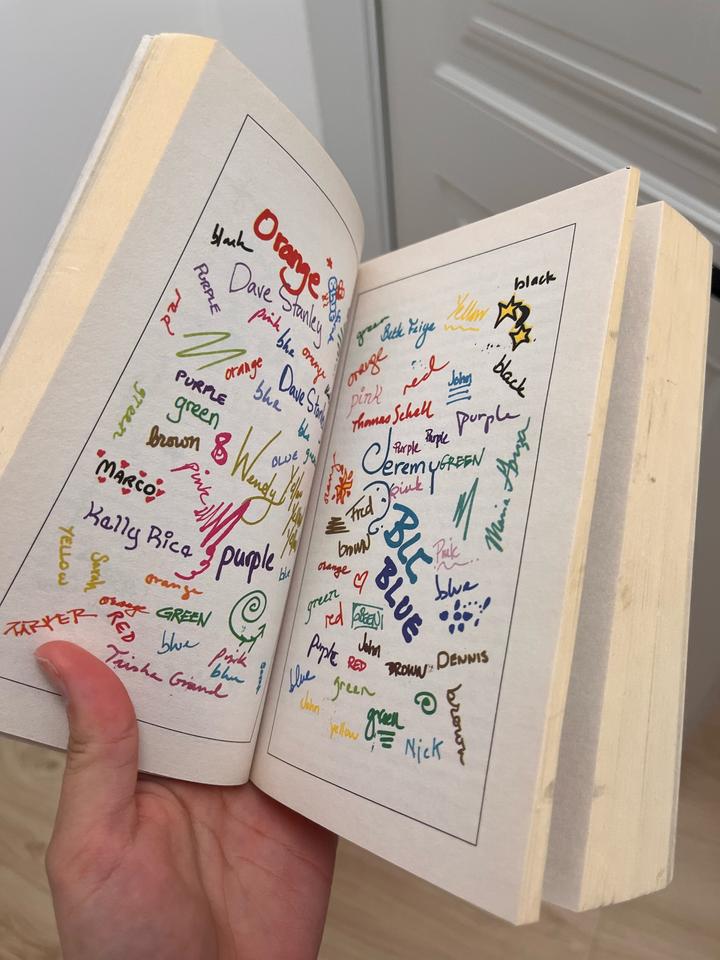 Orange
black
PURPLE
Dave Stanley
red
pink
blue
orange
orange
PURPLE
blue
Dave Stan
green
green
blue
brown
BLUE
Wendy
MARCO
pink
Yellow
Yellow
Yellow
Kelly Rice
purple
YELLOW
Sarah
orange
blue
orange
GREEN
PARKER
RED
blue
pink
blue
Trisha Giand
black
Yellow
green
Beth Feige
orange
red
John
black
pink
Thomas Schell
purple
Purple
Purple
Jeremy
GREEN
orange
pink
Fred
BLUE
brown
Pink
orange
BLUE
blue
green
red
GREEN
John
Purple
RED
BROWN
DENNIS
blue
green
brown
John
green
yellow
Nick